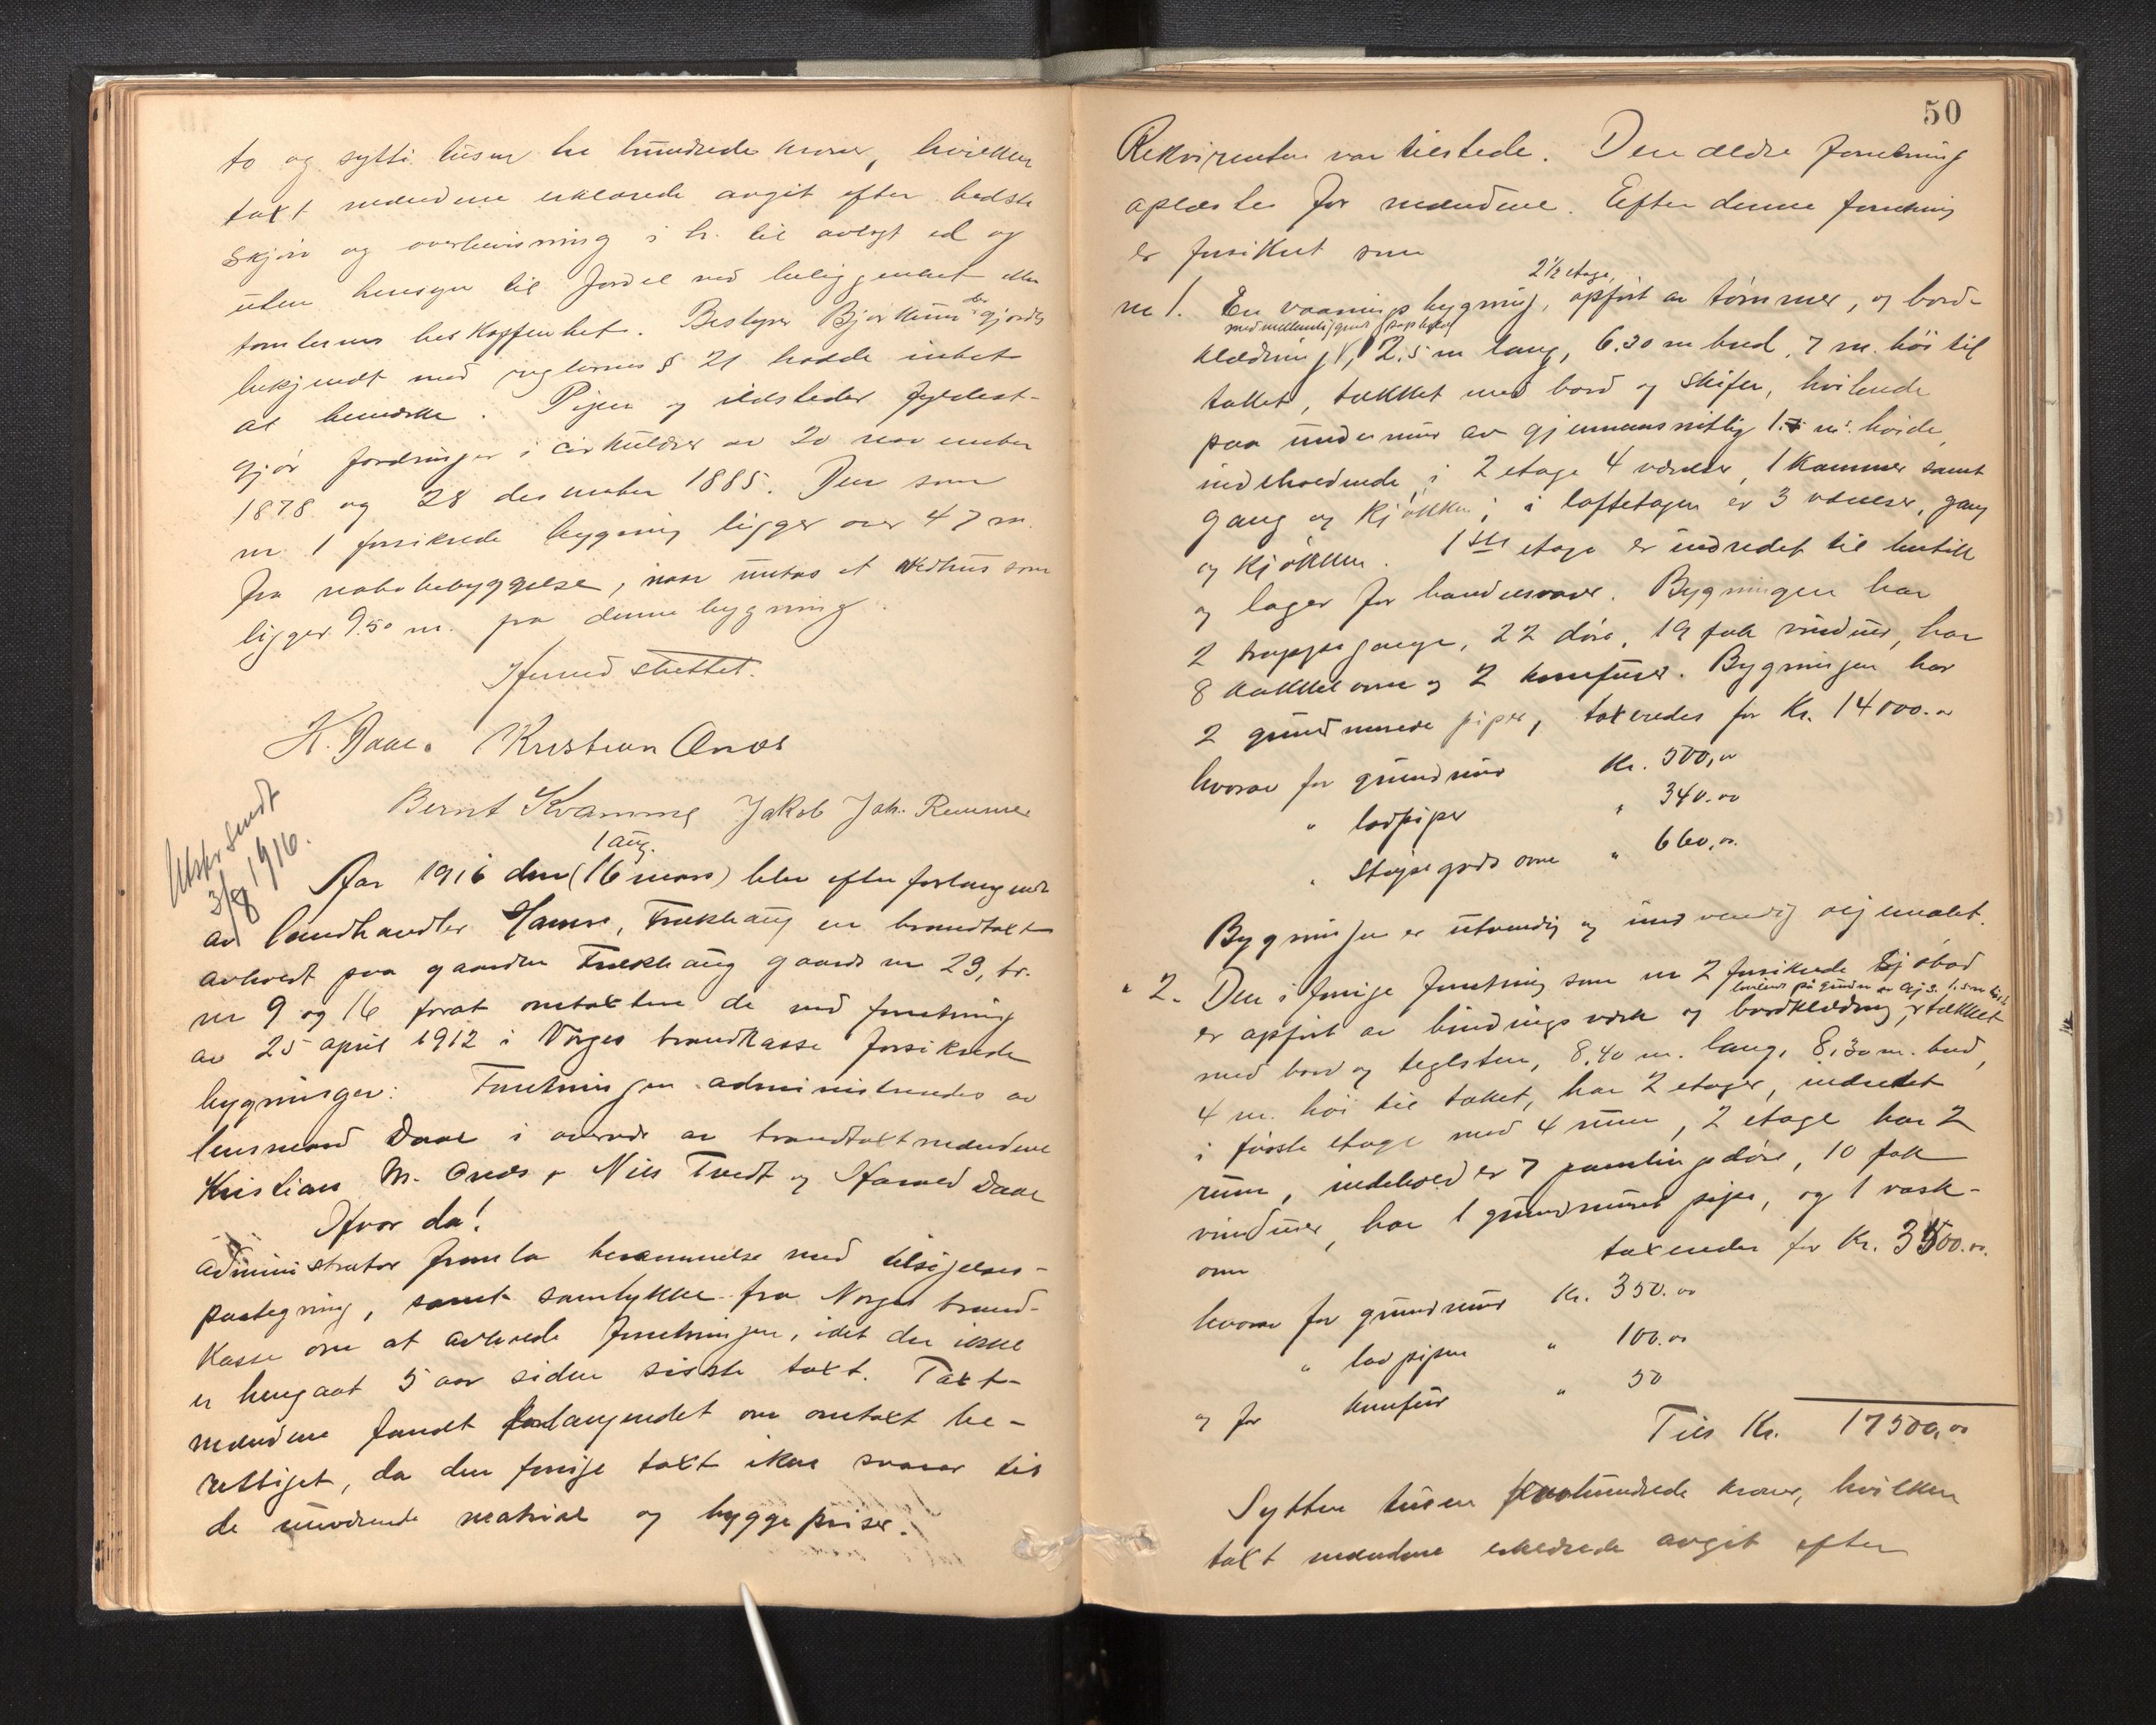 to og sytti tusen tre hundrede kroner, hvilken
takt mændene erklærede avgit efter bedste
skjøn og overbevisning i h. til avlagt ed og
uten hensyn til fordel ved beliggenhet eller
tomternes beskaffenhet. Bestyrer Bjørkum der gjordes
bekjendt med reglernes § 21 hadde intet
at bemerke. Piper og ildsteder fyldest-
gjør fordringer i cirkulærer av 20 november
1878 og 28 desember 1885. Den som
nr. 1 forsikrede bygning ligger over 47 m.
fra nabobebyggelse, naar untas et vedhus som
ligger 9.50 m. fra denne bygning.
Hermed sluttet.
K. Daae. Kristian Onæs
Bernt Kvamme Jakob Joh. Remmer
Utskr. sendt
3/8 1916.
1 aug.
Aar 1916 den (16 mars) blev efter forlangende
av landhandler Hamre, Frekhaug en brandtakt
avholdt paa gaarden Frekhaug gaards nr 23, br.
nr 9 og 16 forat omtaktere de ved forretning
av 25 april 1912 i Norges brandkasse forsikrede
bygninger: Forretningen administreredes av
lensmand Daae i overvær av brandtaktmændene
Kristian M. Onæs, Nils Tvedt og Harald Daae
Hvor da!
Administrator fremla berammelse med tilsigelses-
paategning, samt samtykke fra Norges brand-
kasse om at avholde forretningen, idet der ikke
er hengaat 5 aar siden sidste takt. Takt-
mændene fandt forlangendet om omtakt be-
rettiget, da den forrige takt ikke svarer til
de nuværende material og byggepriser.
50
Rekvirenten var tilstede. Den ældre forretning
oplæstes for mændene. Efter denne forretning
er forsikret som
2 1/2 etage,
nr 1. En vaaningsbygning, opført av tømmer, og bord-
med mellemliggende papbelæg
klædning, 12.5 m lang, 6.30 m bred, 7 m. høi til
taket, tækket med bord og skifer, hvilende
paa undermur av gjennemsnitlig 1.5 m's høide,
indeholdende i 2 etage 4 værelser, 1 kammer samt
gang og kjøkken; i loftetagen er 3 værelser, gang
og kjøkken. 1ste etage er indredet til butik
og lager for handelsvarer. Bygningen har
2 trappeganger, 22 døre, 19 fak vinduer, har
8 kakkelovne og 2 komfurer. Bygningen har
2 grundmurede piper, takseredes for Kr. 14000.00
hvorav for grundmur Kr. 500,00
" lodpiper " 340.00
" støpegods ovne " 660,00.
Bygningen er utvendig og indvendig oljemalet.
" 2. Den i forrige forretning som nr 2 forsikrede sjøbod
hvilende på grundm. av gj.s. 1.5 m høide
er opført av bindingsverk og bordklædning, tækket
med bord og teglsten, 8.40 m. lang, 8.30 m. bred,
4 m. høi til taket, har 2 etager, indredet
i første etage med 4 rum, 2 etage har 2
rum, indeholder 7 panelingsdøre, 10 fak
vinduer, har 1 grundmuret pipe, og 1 vask-
ovn takseredes for Kr. 3500.00.
hvorav for grundmur Kr. 350.00
" lodpipen " 100.00
og for komfur " 50
Tils Kr. 17500,00
Sytten tusen femhundrede kroner, hvilken
takt mændene erklærede avgit efter